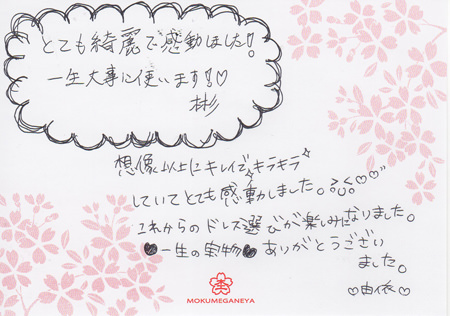 とても綺麗で感動しました!
一生大事に使います!♡
彬
想像以上にキレイでキラキラ
していてとても感動しました。
これからのドレス選びが楽しみになりました。
♥一生の宝物♥ ありがとうござい
ました。
♡由依♡
MOKUMEGANEYA